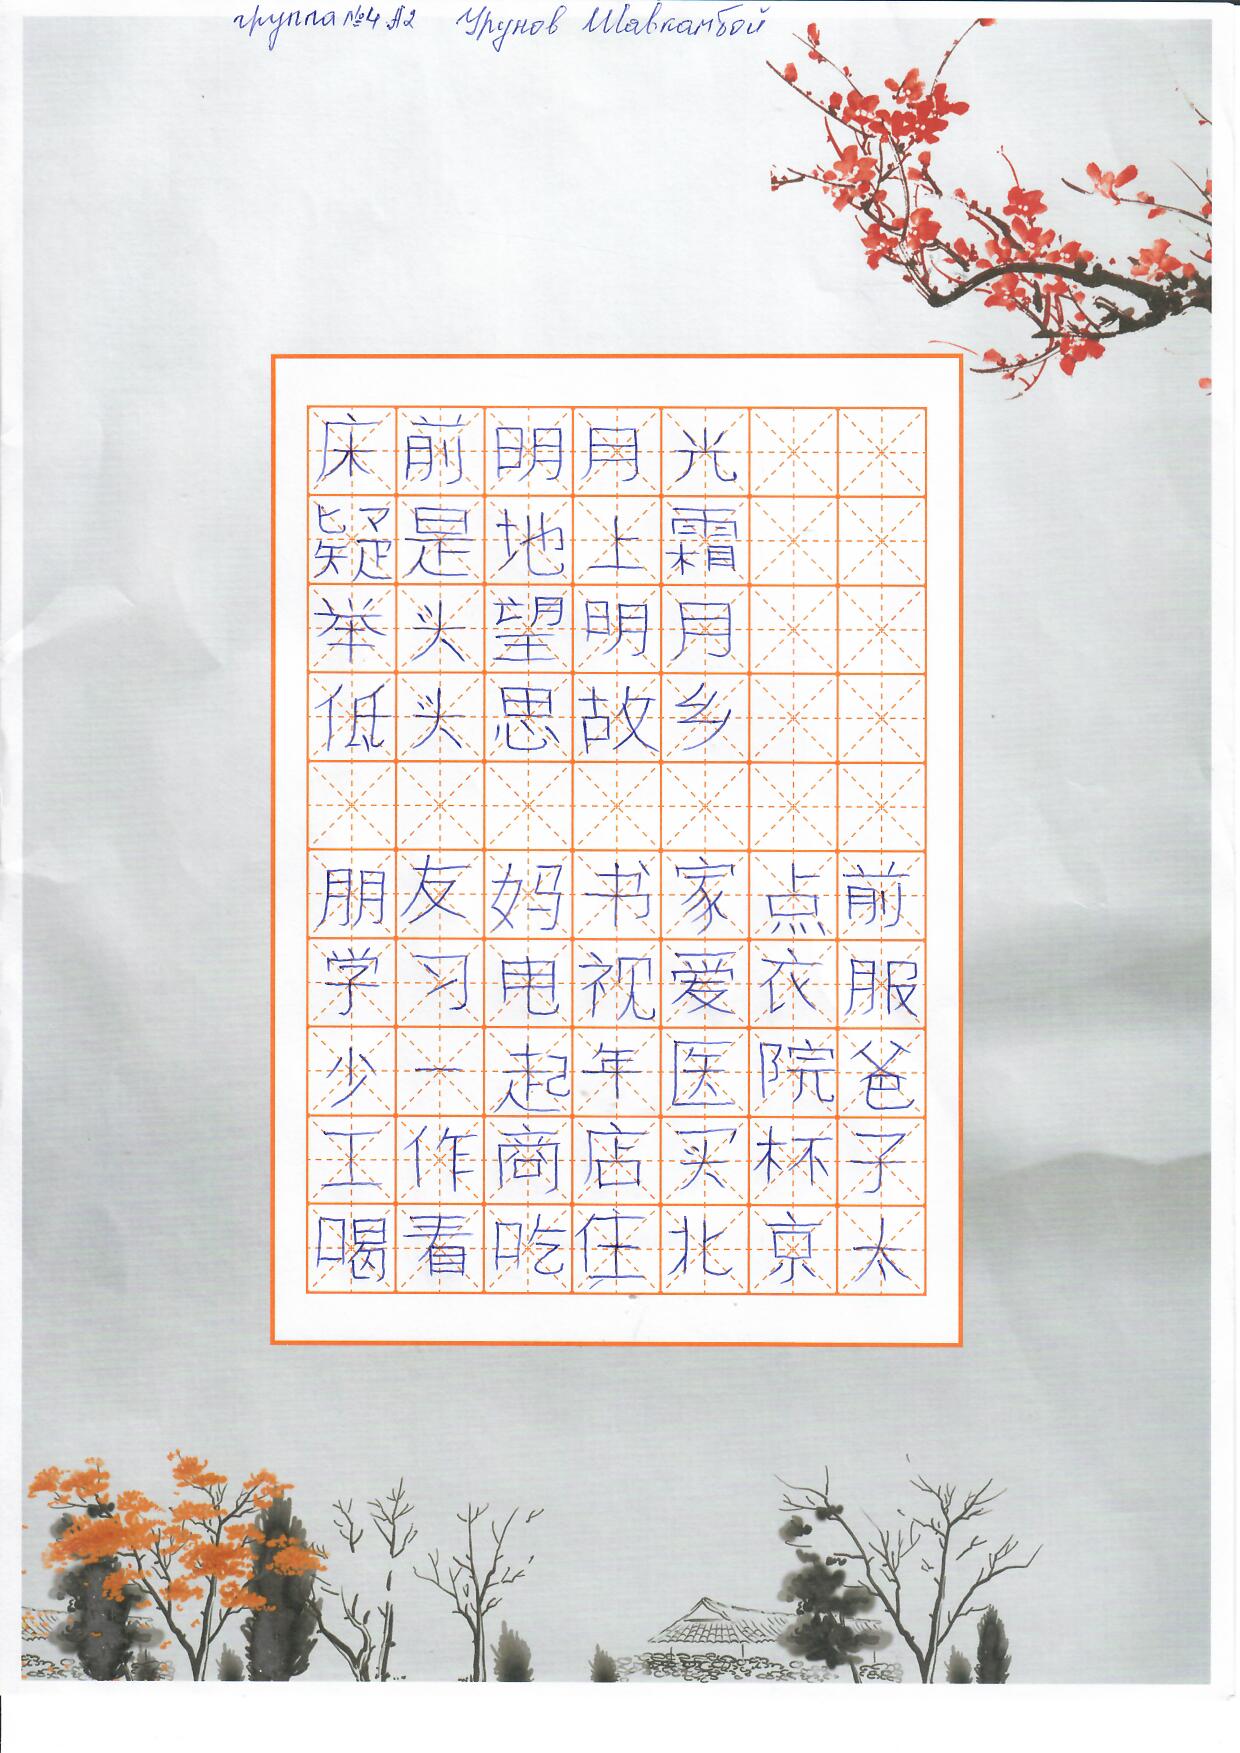 группа №4 А2 Урунов Шавкатбой
床前明月光
疑是地上霜
举头望明月
低头思故乡
朋友妈书家点前
学习电视爱衣服
少一起年医院爸
工作商店买杯子
喝看吃住北京太